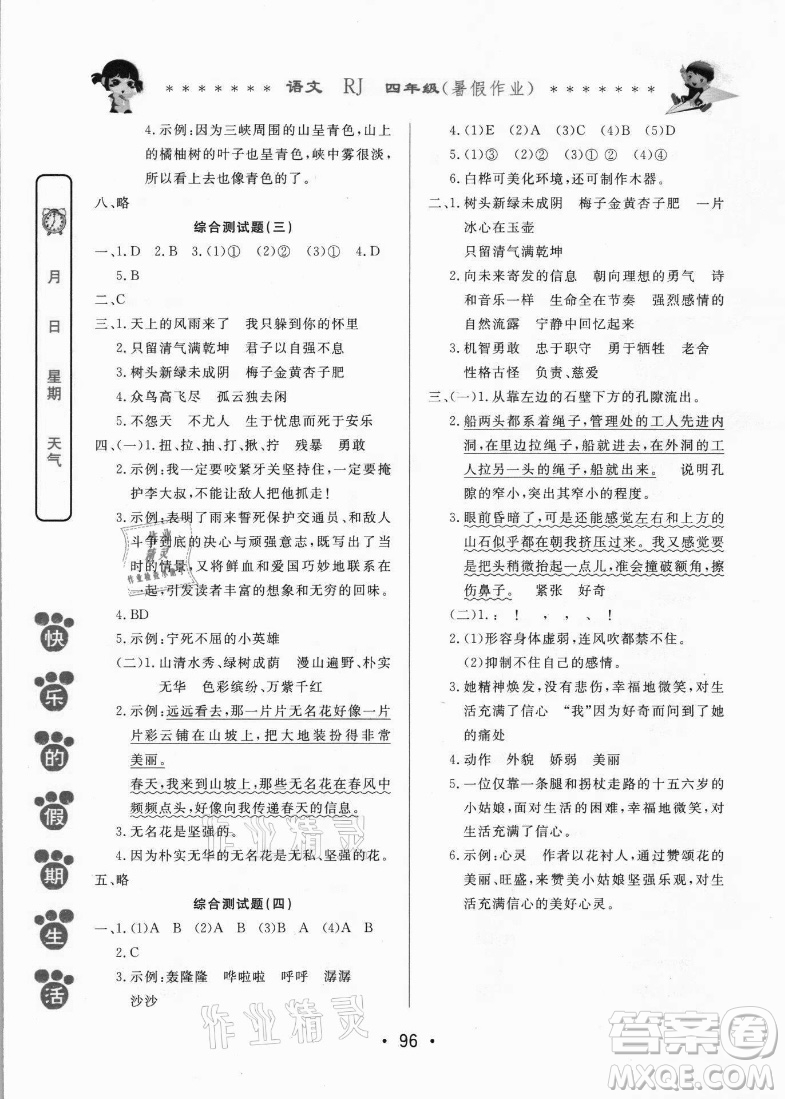 ＊＊＊＊＊＊＊ 语文 RJ 四年级(暑假作业) ＊＊＊＊＊＊＊
月
日
星期
天气
快
乐
的
假
期
生
活
4. 示例:因为三峡周围的山呈青色,山上
的橘柚树的叶子也呈青色,峡中雾很淡,
所以看上去也像青色的了。
八、略
综合测试题(三)
一、1. D 2. B 3. (1)① (2)② (3)① 4. D
5. B
二、C
三、1. 天上的风雨来了 我只躲到你的怀里
2. 只留清气满乾坤 君子以自强不息
3. 树头新绿未成阴
4. 众鸟高飞尽 孤云独去闲
5. 不怨天 不尤人 生于忧患而死于安乐
四、(一)1. 扭、拉、抽、打、揪、拧 残暴 勇敢
2. 示例:我一定要咬紧牙关坚持住,一定要掩
护李大叔,不能让敌人把他抓走!
3. 示例:表明了雨来誓死保护交通员、和敌人
斗争到底的决心与顽强意志,照应了下文
的情景,又将鲜血和爱国巧妙地联系在一
起,引发读者丰富的想象和无穷的回味。
4. BD
5. 示例:宁死不屈的小英雄
(二)1. 山清水秀、绿树成荫 漫山遍野、朴实
无华 色彩缤纷、万紫千红
2. 示例:远远看去,那一片片无名花好像一片
片彩云铺在山坡上,把大地装扮得非常
美丽。
春天,我来到山坡上,那些无名花在春风中
频频点头,好像向我传递春天的信息。
3. 无名花是坚强的。
4. 因为朴实无华的无名花是无私、坚强的花。
五、略
综合测试题(四)
一、1. (1)A B (2)B A (3)A B (4)A B
2. C
3. 示例:轰隆隆 哗啦啦 呼呼 潺潺
沙沙
4. (1)E (2)A (3)C (4)B (5)D
5. (1)③ (2)② (3)① (4)④
6. 白桦可美化环境,还可制作木器。
二、1. 树头新绿未成阴 梅子金黄杏子肥 一片
冰心在玉壶
只留清气满乾坤
2. 向未来寄发的信息 朝向理想的勇气 诗
和音乐一样 生命全在节奏 强烈感情的
自然流露 宁静中回忆起来
3. 机智勇敢 忠于职守 勇于牺牲 老舍
性格古怪 负责、慈爱
三、(一)1. 从靠左边的石壁下方的孔隙流出。
2. 船两头都系着绳子,管理处的工人先进内
洞,在里边拉绳子,船就进去,在外洞的工
人拉另一头的绳子,船就出来。 说明孔
隙的窄小,突出空间的窄小的程度。
3. 眼前昏暗了,可是还能感觉左右和上方的
山石似乎都在朝我挤压过来。我又感觉
要是把头稍微抬起一点儿,准会撞破额角,擦
伤鼻子。 紧张 好奇
(二)1. : ! , 、 !
2. (1)形容身体虚弱,连风吹都禁不住。
(2)抑制不住自己的感情。
3. 她精神焕发,没有悲伤,幸福地微笑,对生
活充满了信心 “我”因为好奇而触到了她
的痛处
4. 动作 外貌 娇弱 美丽
5. 一位仅靠一条腿和拐杖走路的十五六岁的
小姑娘,面对生活的困难,幸福地微笑,对
生活充满了信心。
6. 示例:心灵 作者以花衬人,通过赞颂花的
美丽、旺盛,来赞美小姑娘坚强乐观,对生
活充满信心的美好心灵。
作业精灵
作业精灵
答案卷
MXQE.COM
• 96 •